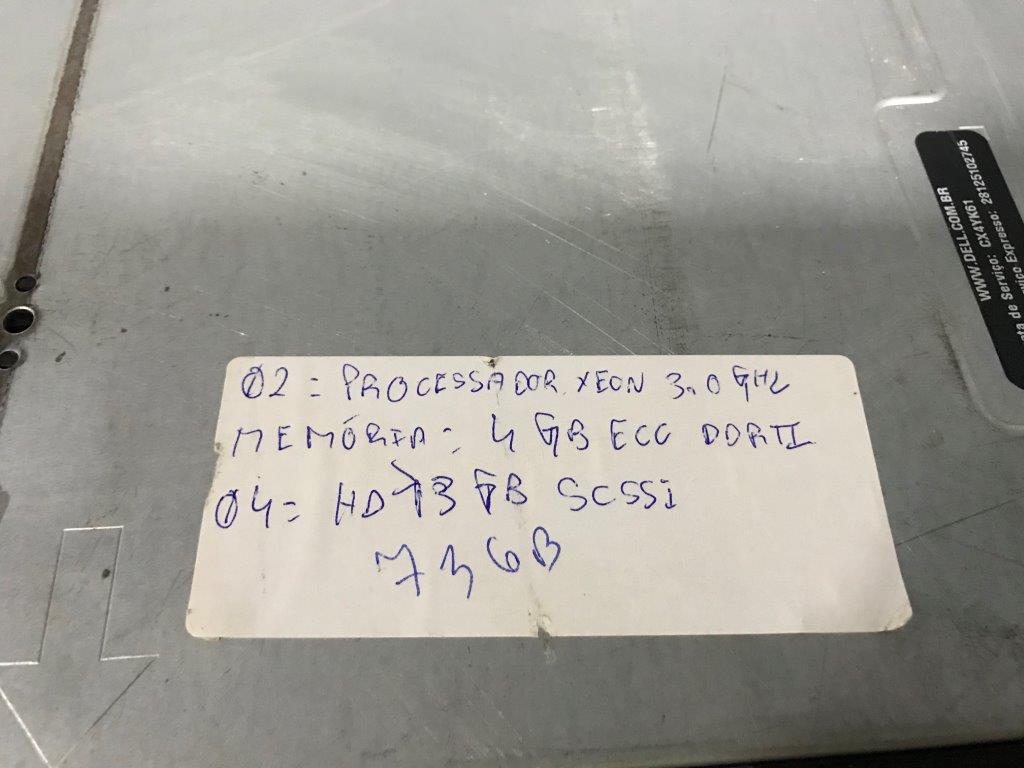 02 = PROCESSADOR XEON 3.0 GHZ
MEMÓRIA: 4 GB ECC DDRII
04 = HD 73 GB SCSSI
73 GB
WWW.DELL.COM.BR
ta de Serviço: CX4YK61
viço Expresso: 28125102745